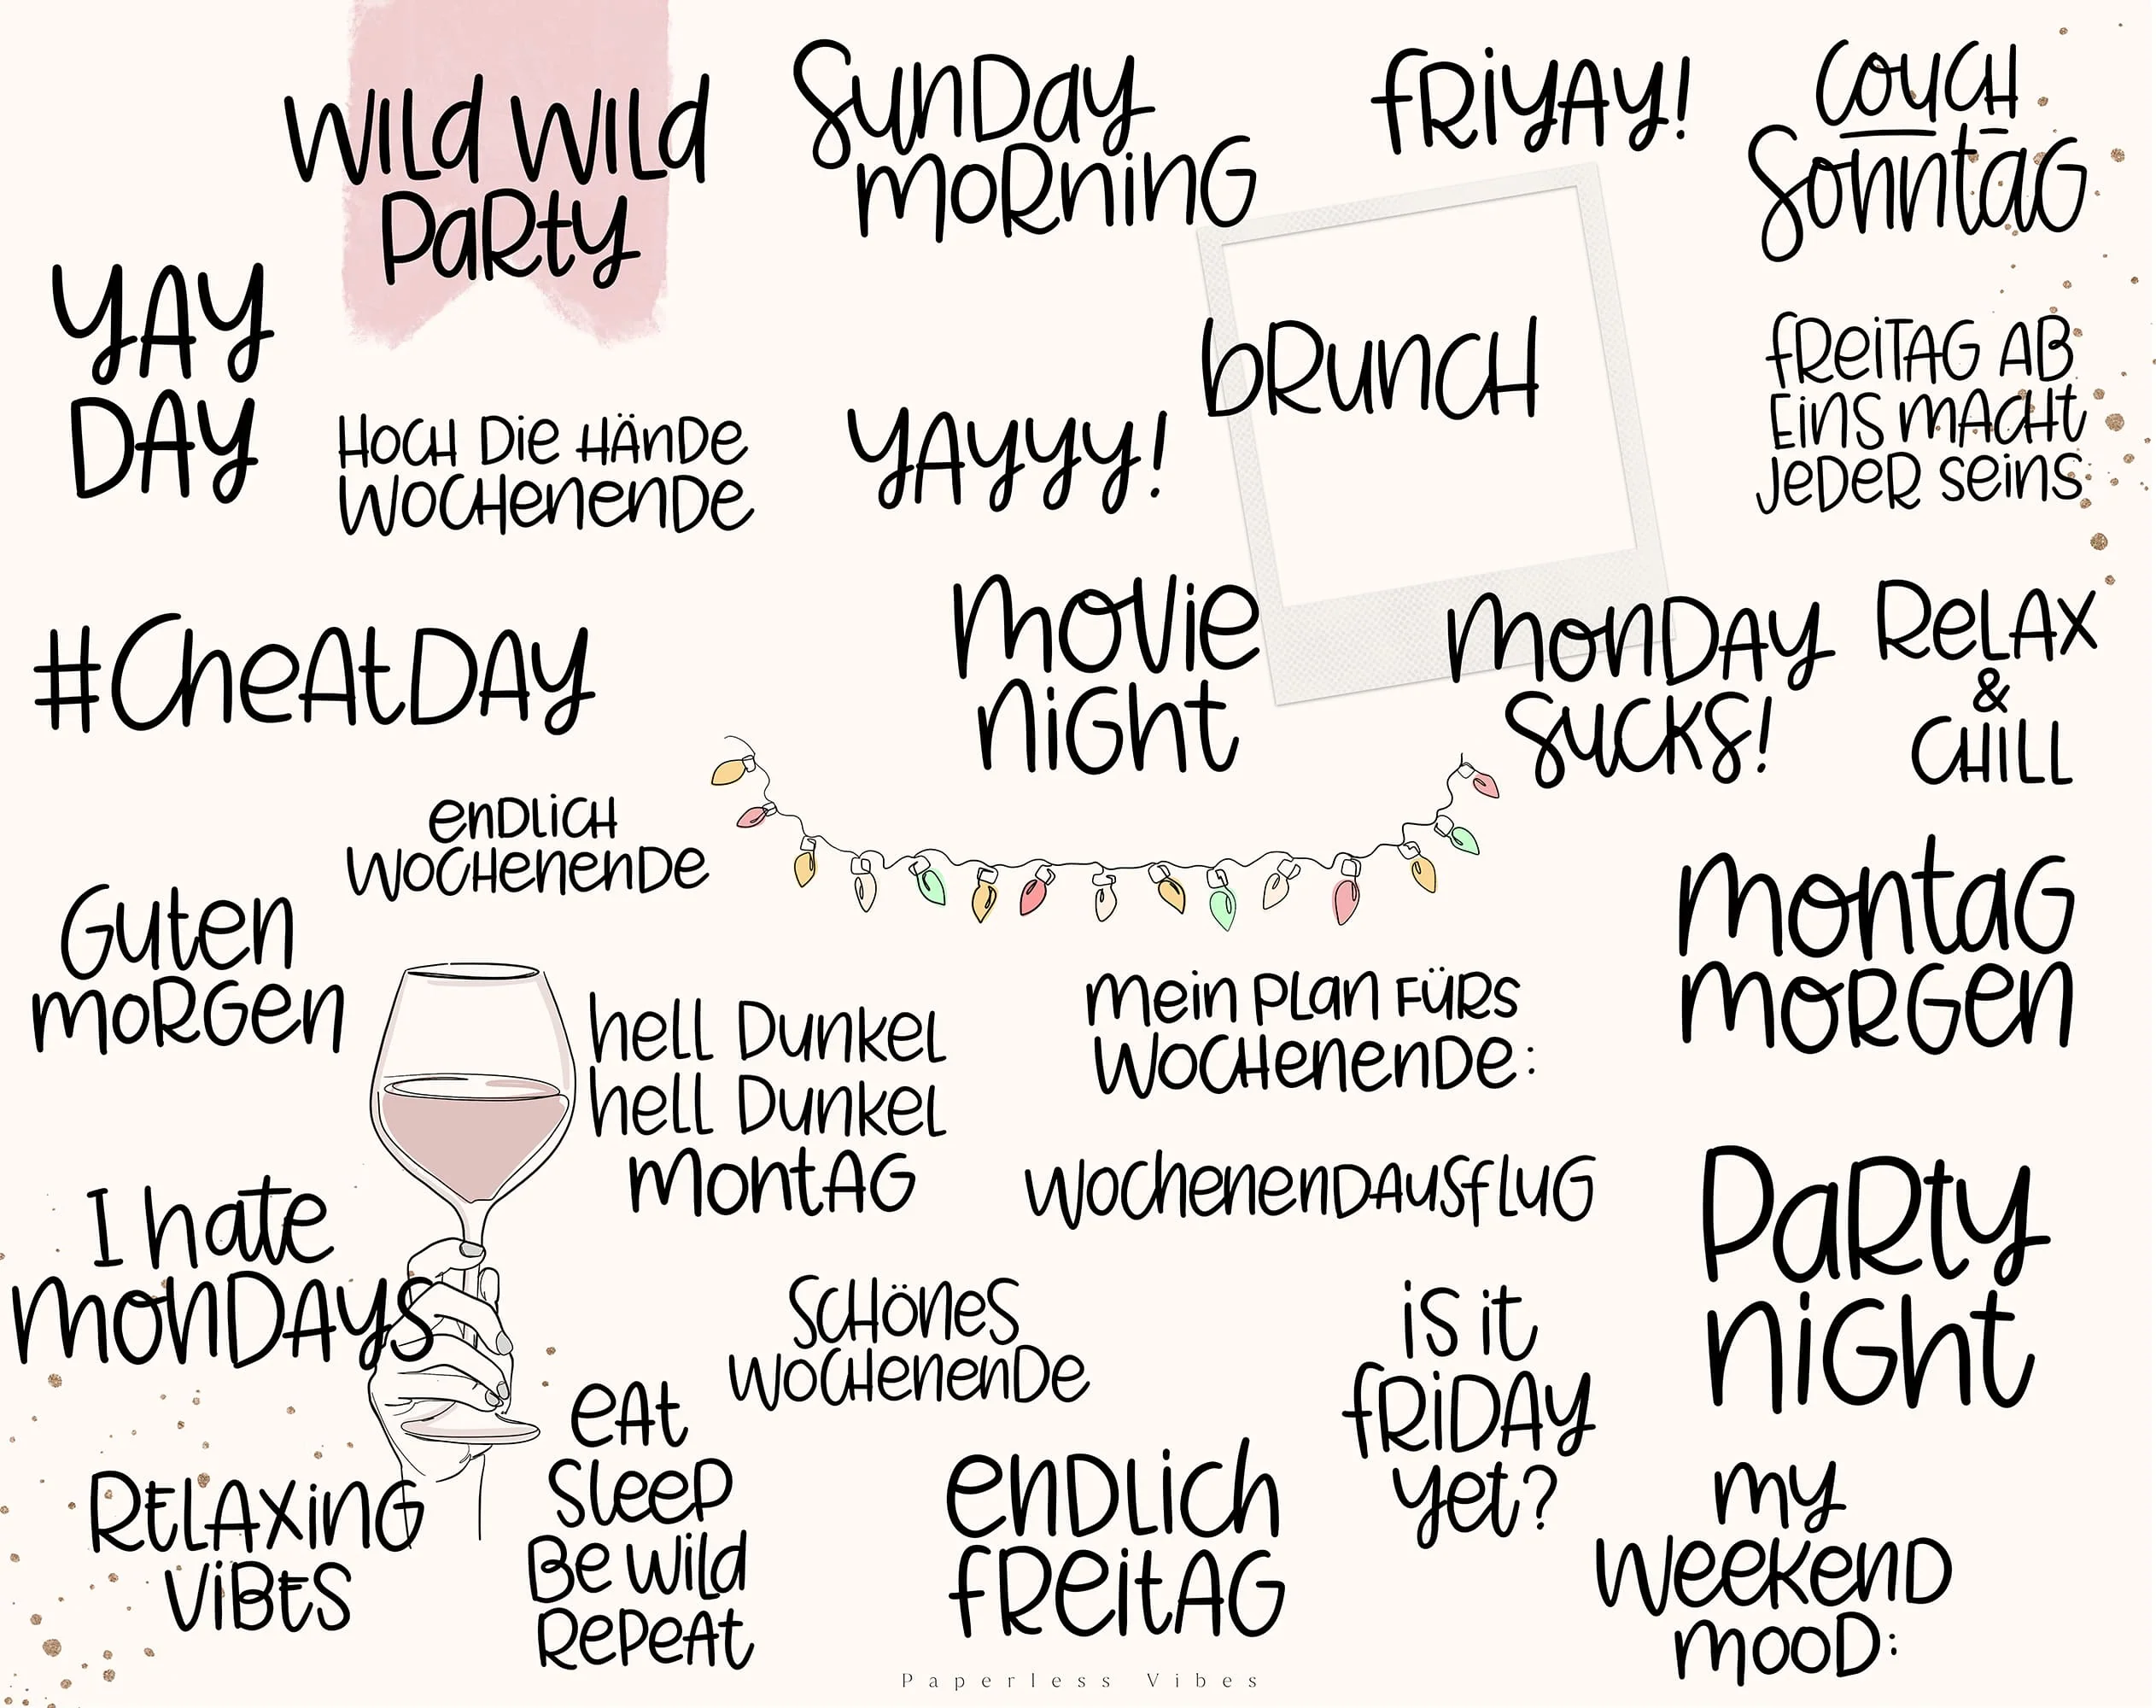 WILd WILd
PaRty
SunDay
moRninG
fRiYAY!
COUCH
SonntaG
YAY
DAY
HOCH Die HÄnDe
WOCHenenDe
YAYYY!
bRunCH
fReiTAG AB
EinS mACHt
JeDeR seinS
#CheAtDAY
movie
niGht
monDAY
SUCKS!
ReLAX
&
CHILL
enDLiCH
WOCHenenDe
Guten
moRGen
hell Dunkel
hell Dunkel
montAG
mein PLan FÜRs
WOCHenenDe:
montaG
moRGen
I hate
monDAYS
WOChenenDAUSfLUG
PaRty
niGht
SCHÖneS
WOCHenenDe
is it
fRiDAY
yet?
eAt
SLeeP
Be WiLd
RePeAt
RELAXinG
ViBES
enDLich
fReitAG
my
WeekenD
mooD:
Paperless Vibes